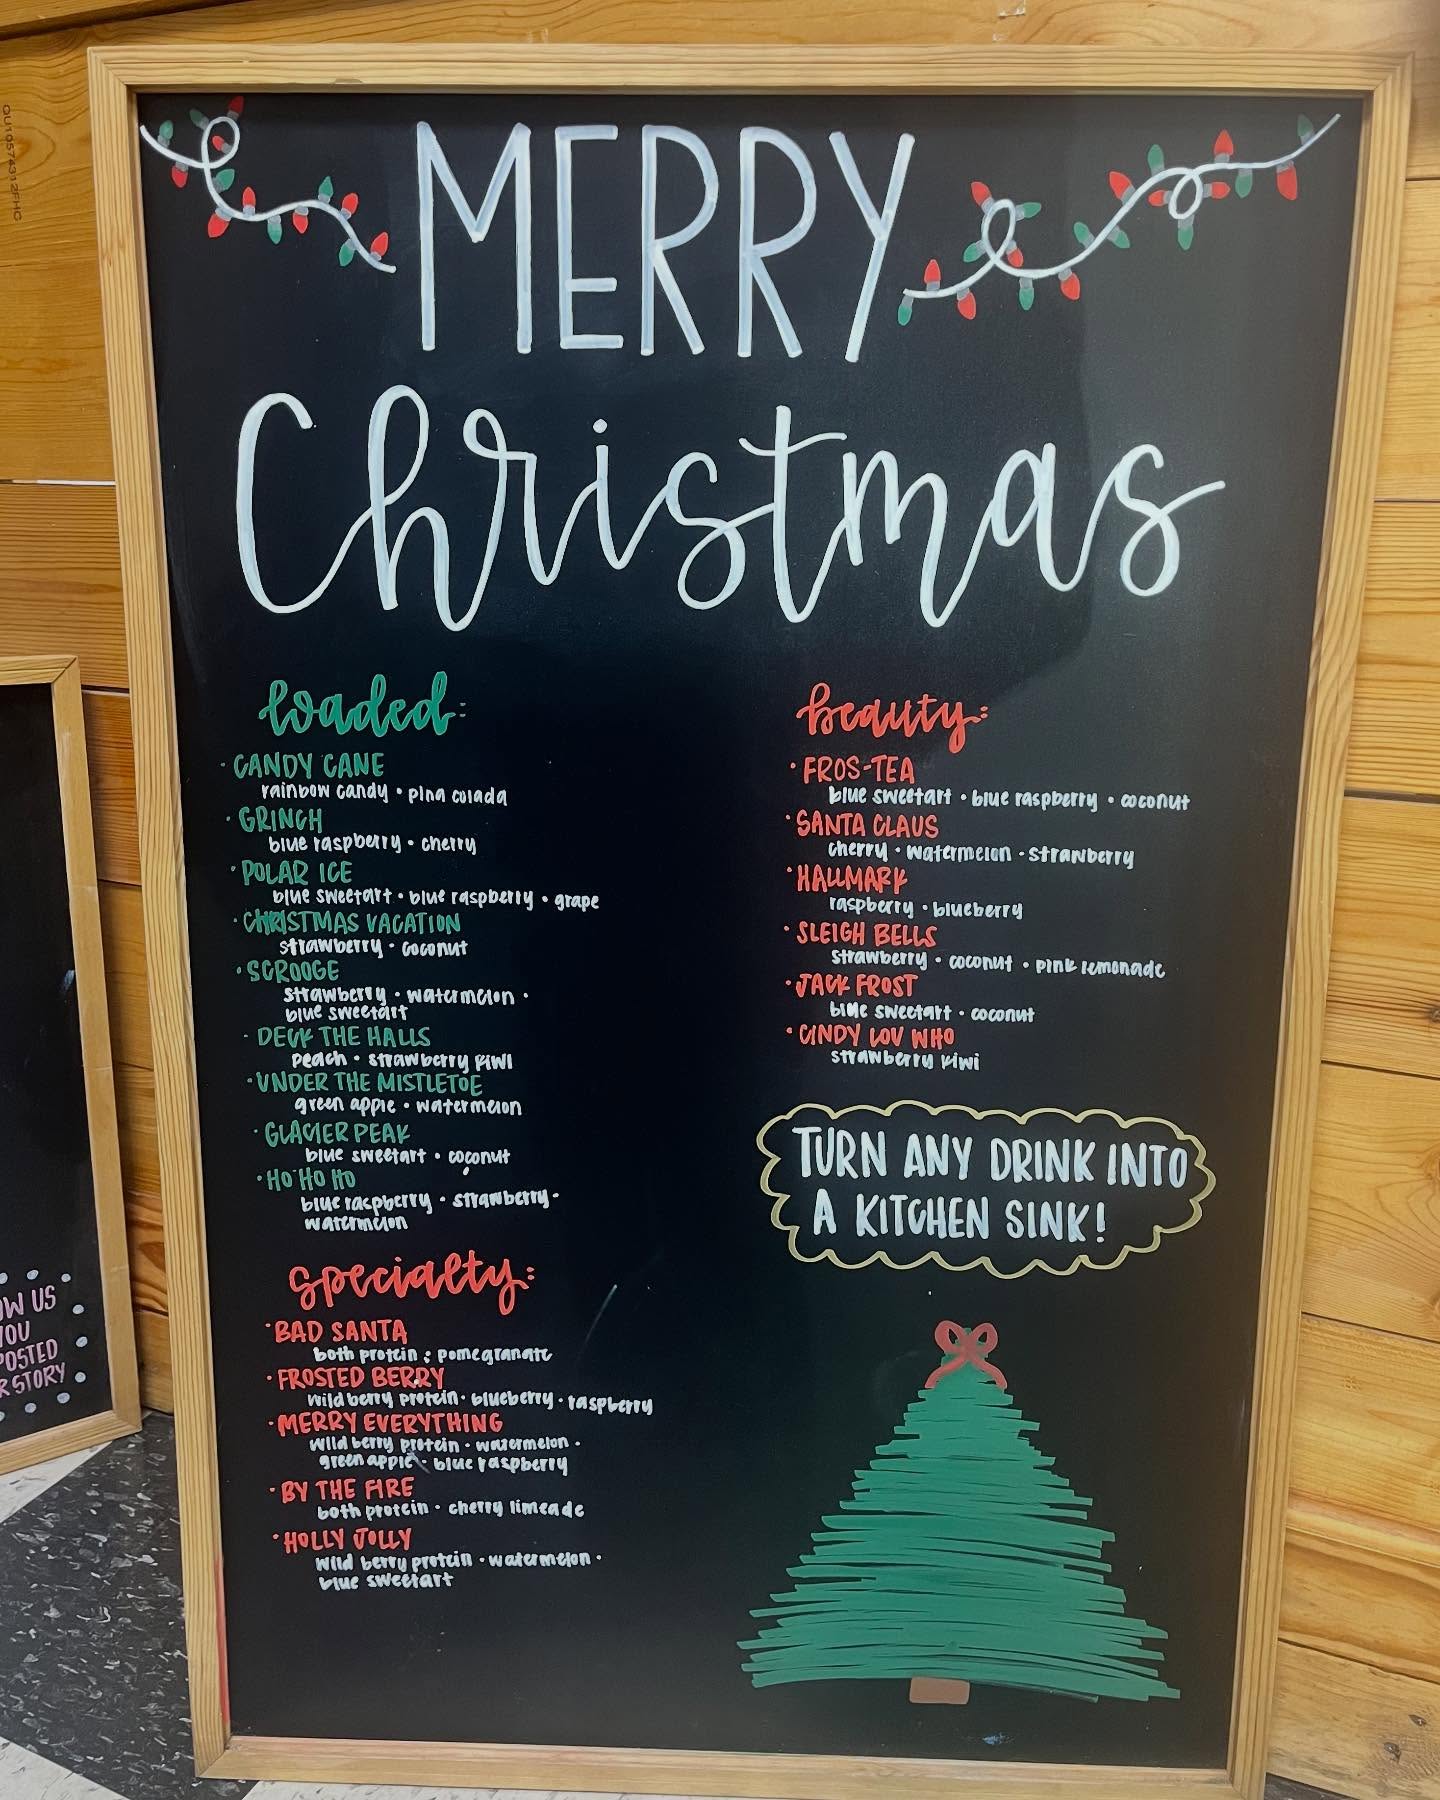 MERRY
Christmas
loaded:
· CANDY CANE
rainbow candy • pina colada
· GRINCH
blue raspberry • cherry
· POLAR ICE
blue sweetart • blue raspberry • grape
· CHRISTMAS VACATION
strawberry • coconut
· SCROOGE
strawberry • watermelon •
blue sweetart
· DECK THE HALLS
peach • strawberry kiwi
· UNDER THE MISTLETOE
green apple • watermelon
· GLACIER PEAK
blue sweetart • coconut
· HO HO HO
blue raspberry • strawberry •
watermelon
specialty:
· BAD SANTA
both protein : pomegranate
· FROSTED BERRY
wild berry protein • blueberry • raspberry
· MERRY EVERYTHING
wild berry protein • watermelon •
green apple • blue raspberry
· BY THE FIRE
both protein • cherry limeade
· HOLLY JOLLY
wild berry protein • watermelon •
blue sweetart
beauty:
· FROS-TEA
blue sweetart • blue raspberry • coconut
· SANTA CLAUS
cherry • watermelon • strawberry
· HALLMARK
raspberry • blueberry
· SLEIGH BELLS
strawberry • coconut • pink lemonade
· JACK FROST
blue sweetart • coconut
· CINDY LOU WHO
strawberry kiwi
TURN ANY DRINK INTO
A KITCHEN SINK!
OW US
YOU
POSTED
R STORY